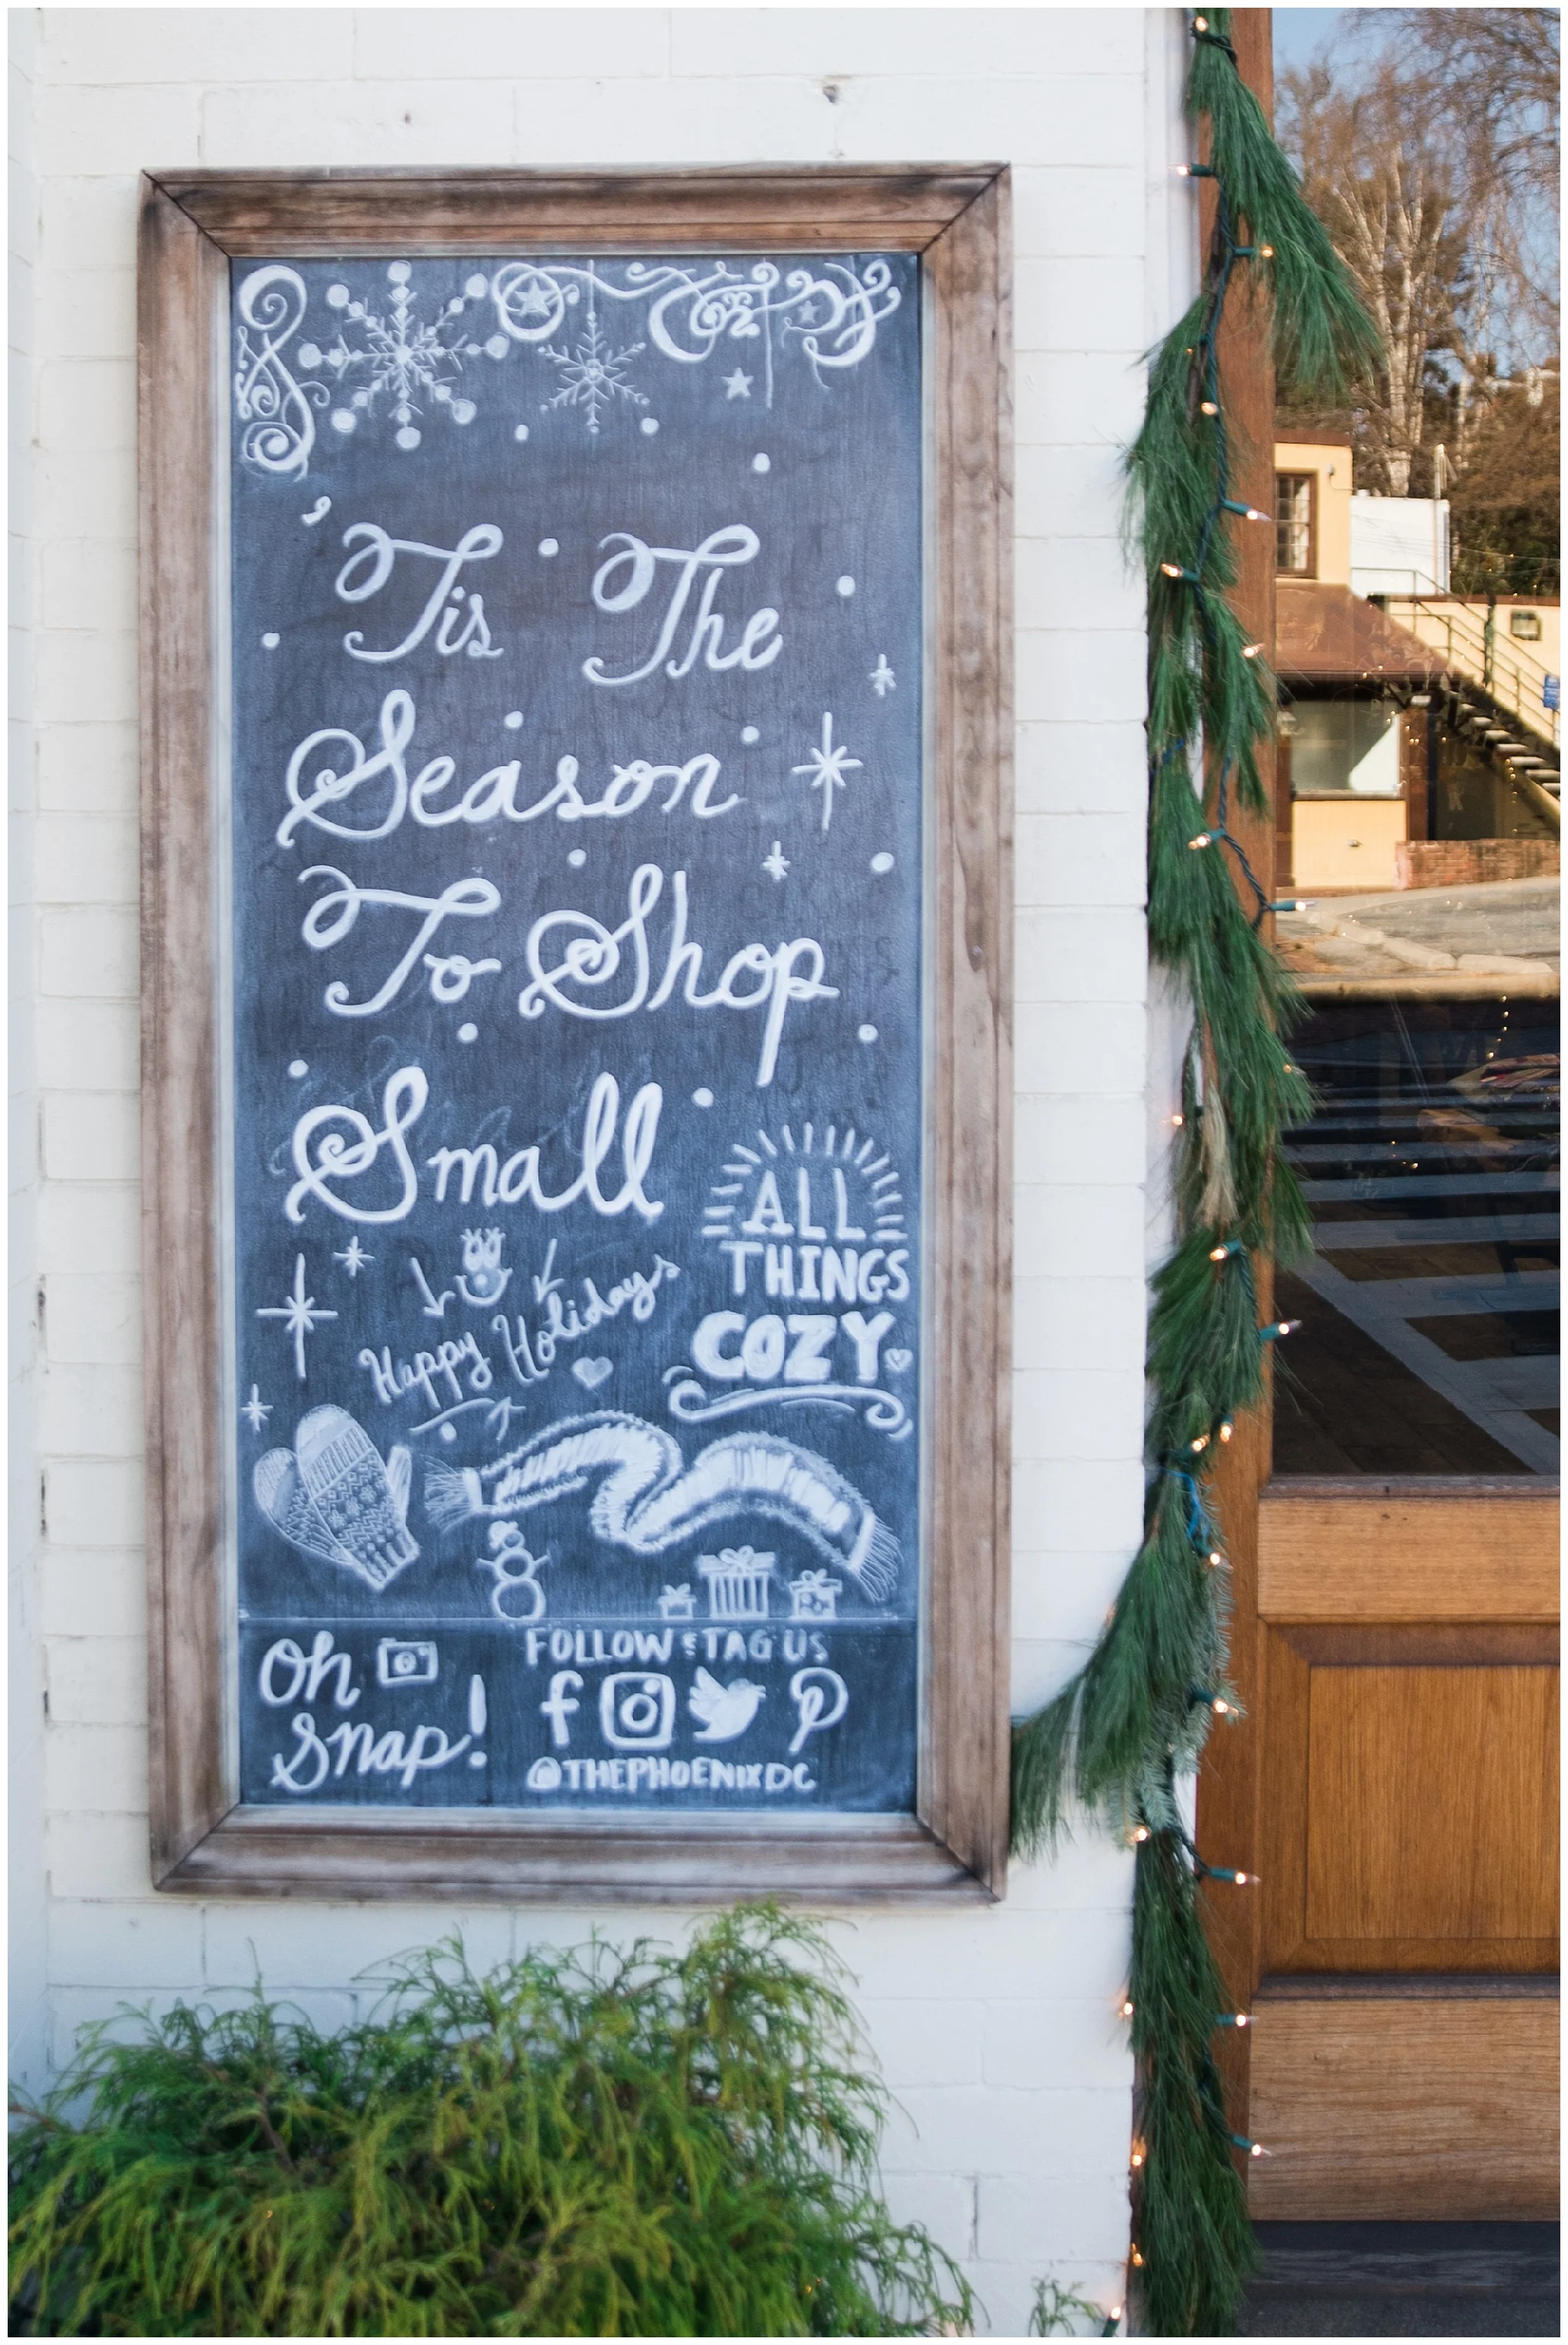 'Tis The
Season
To Shop
Small
ALL
THINGS
COZY
Happy Holidays
Oh
Snap!
FOLLOW & TAG US
@THEPHOENIXDC